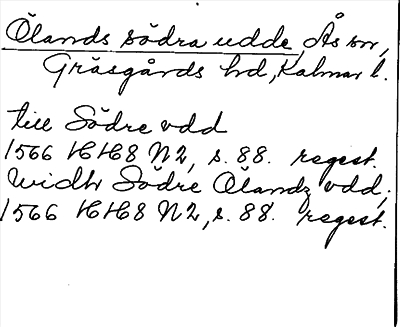 Ölands södra udde, Ås sn,
Gräsgårds hd, Kalmar l.
till Södre vdd
1566 HH8 N2, s. 88. regest.
widh Södre Ölandz vdd,
1566 HH8 N2, s. 88. regest.